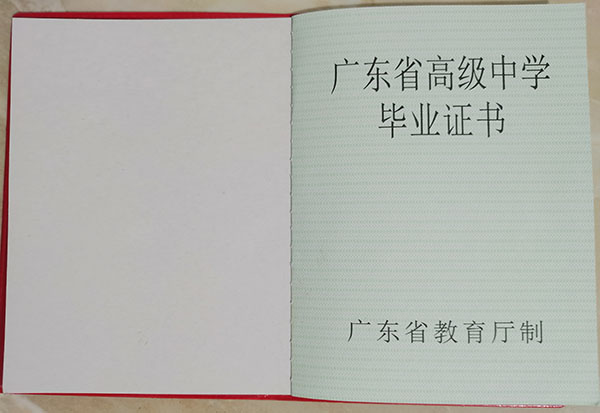 广东省高级中学
毕业证书
广东省教育厅制